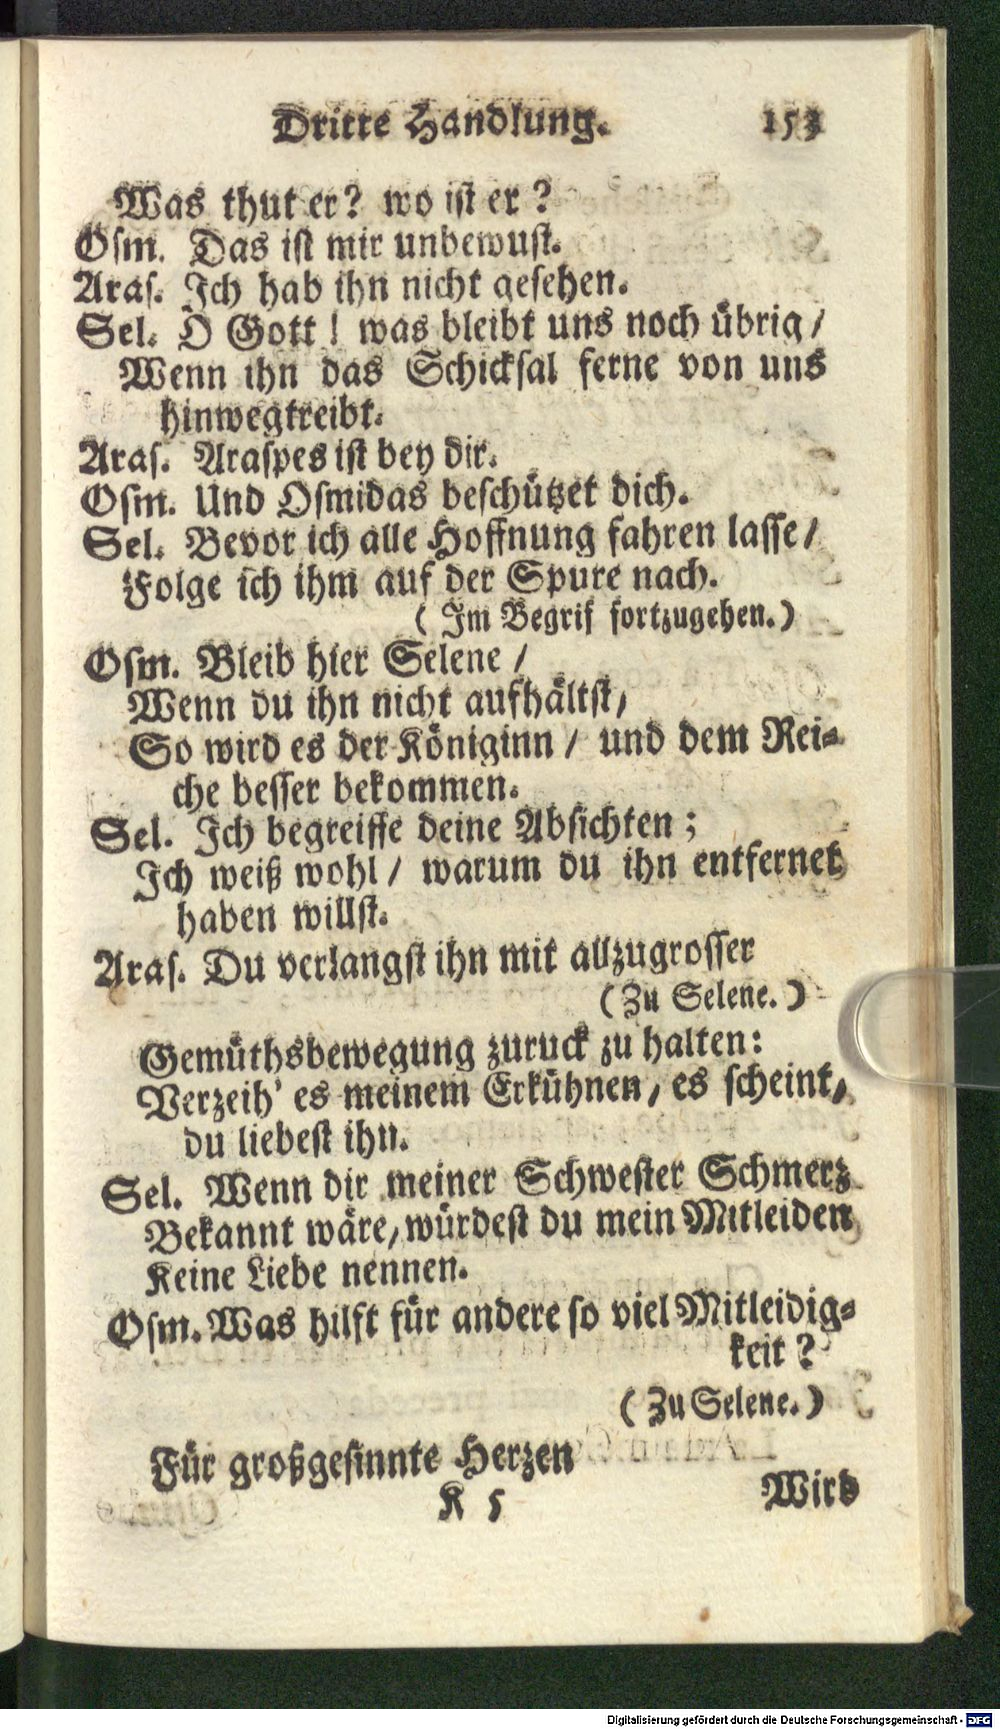 Dritte Handlung. 153
Was thut er? wo ist er?
Osm. Das ist mir unbewust.
Aras. Ich hab ihn nicht gesehen.
Sel. O Gott! was bleibt uns noch übrig/
Wenn ihn das Schicksal ferne von uns
hinwegtreibt.
Aras. Araspes ist bey dir.
Osm. Und Osmidas beschützet dich.
Sel. Bevor ich alle Hoffnung fahren lasse/
Folge ich ihm auf der Spure nach.
( Im Begrif fortzugehen.)
Osm. Bleib hier Selene /
Wenn du ihn nicht aufhältst/
So wird es der Königinn / und dem Rei-
che besser bekommen.
Sel. Ich begreiffe deine Absichten;
Ich weiß wohl/ warum du ihn entfernet
haben willst.
Aras. Du verlangst ihn mit allzugrosser
(Zu Selene.)
Gemüthsbewegung zuruck zu halten:
Verzeih' es meinem Erkühnen, es scheint,
du liebest ihn.
Sel. Wenn dir meiner Schwester Schmerz
Bekannt wäre, würdest du mein Mitleiden
Keine Liebe nennen.
Osm. Was hilft für andere so viel Mitleidig-
keit?
(Zu Selene.)
Für großgesinnte Herzen
K 5 Wird
Digitalisierung gefördert durch die Deutsche Forschungsgemeinschaft - DFG